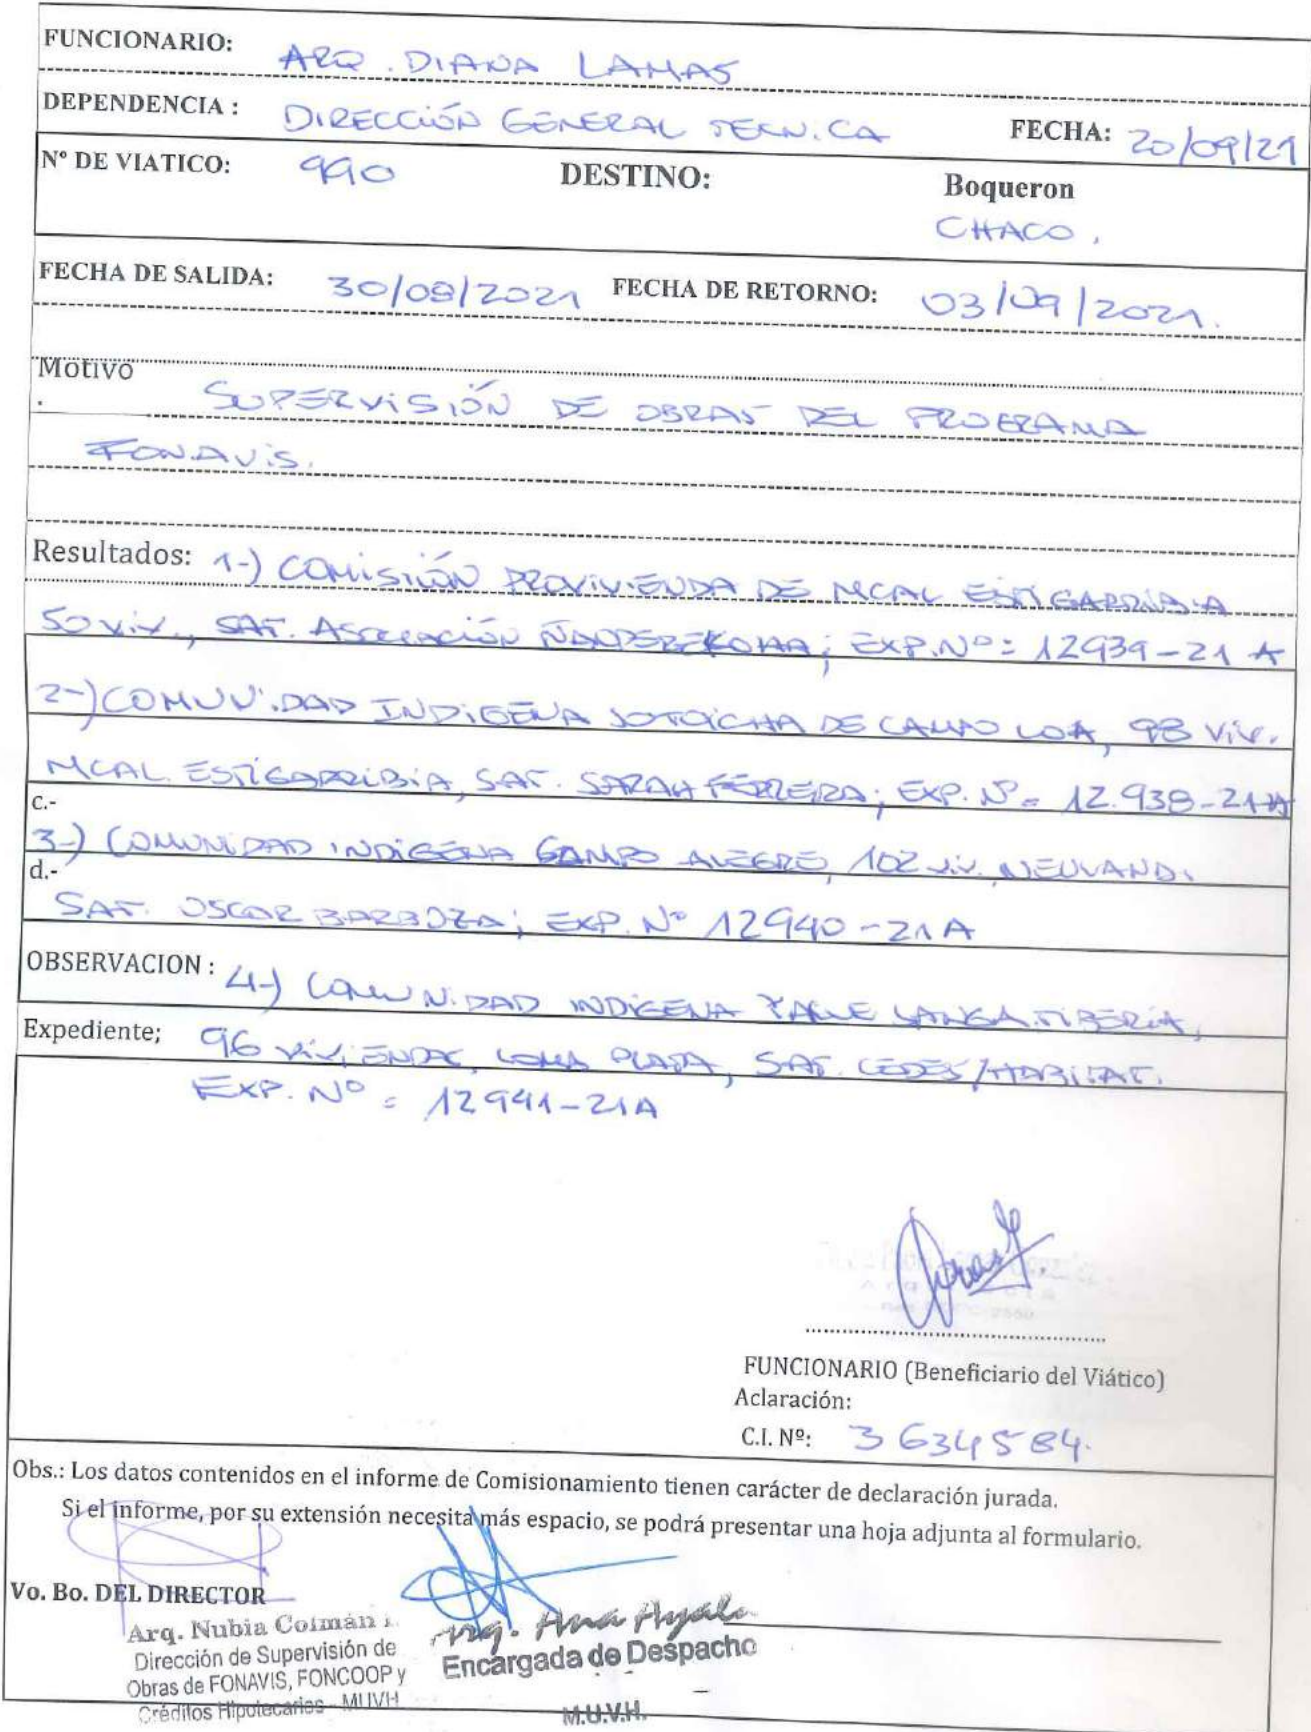 FUNCIONARIO: ARQ. DIANA LAMAS
DEPENDENCIA : DIRECCIÓN GENERAL TECNICA FECHA: 20/09/21
Nº DE VIATICO: 990 DESTINO: Boqueron
CHACO.
FECHA DE SALIDA: 30/08/2021 FECHA DE RETORNO: 03/09/2021.
Motivo
. SUPERVISIÓN DE OBRAS DEL PROGRAMA
FONAVIS.
Resultados: 1-) COMISIÓN PROVIVIENDA DE MCAL ESTIGARRIBIA
50 viv., SAT. ASOCIACIÓN ÑANDEREKOHA; EXP.Nº: 12939-21 A
2-) COMUNIDAD INDIGENA JOTOICHA DE CAMPO LOA, 98 viv.
MCAL. ESTIGARRIBIA, SAT. SARAH FERREIRA; EXP. Nº= 12.938-21-A
c.-
3-) COMUNIDAD INDIGENA CAMPO ALEGRE, 102 viv. NEULAND.
d.-
SAT. OSCAR BARBOZA; EXP. Nº 12940-21A
OBSERVACION : 4-) COMUNIDAD INDIGENA YALVE SANGA.
Expediente; 96 VIVIENDAS, LOMA PLATA, SAT. CEDES/HABITAT.
EXP. Nº = 12941-21A
FUNCIONARIO (Beneficiario del Viático)
Aclaración:
C.I. Nº: 3634584.
Obs.: Los datos contenidos en el informe de Comisionamiento tienen carácter de declaración jurada.
Si el informe, por su extensión necesita más espacio, se podrá presentar una hoja adjunta al formulario.
Vo. Bo. DEL DIRECTOR
Arq. Nubia Colmán
Dirección de Supervisión de
Obras de FONAVIS, FONCOOP y
Créditos Hipotecarios - MUVH
Arq. Ana Ayala
Encargada de Despacho
M.U.V.H.